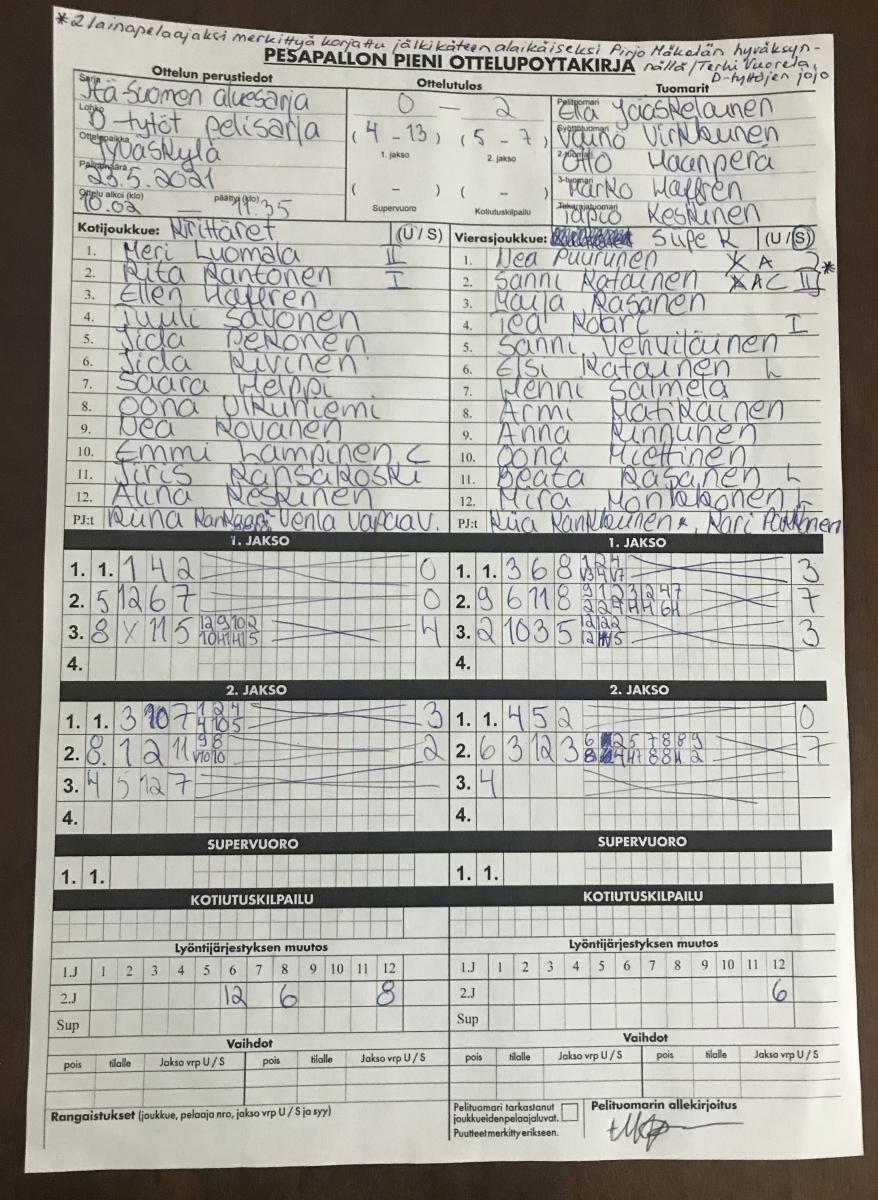 *2 lainapelaajaksi merkittyä korjattu jälkikäteen alaikäiseksi Pirjo Mäkelän hyväksyn-
nällä/Terhi Vuorela,
D-tyttöjen jojo
PESÄPALLON PIENI OTTELUPÖYTÄKIRJA
Ottelun perustiedot Ottelutulos Tuomarit
Sarja Itä-Suomen aluesarja
Lohko D-tytöt pelisarja
Ottelupaikka Jyväskylä
Päivämäärä 23.5.2021
Ottelu alkoi (klo) 10.02 — päättyi (klo) 11.35
0 – 2
(4 – 13) (5 – 7)
1. jakso 2. jakso
( – ) ( – )
Supervuoro Kotiutuskilpailu
Pelituomari Ela Jääskeläinen
Syöttötuomari Väinö Virkkunen
2-tuomari Otto Haanperä
3-tuomari Marko Haffren
Takarajatuomari Tapio Keskinen
Kotijoukkue: Kirittäret (U / S)
1. Meri Luomala II
2. Rita Kantonen I
3. Ellen Haffren
4. Tuuli Savonen
5. Iida Pekonen
6. Iida Kivinen
7. Saara Helppi
8. Oona Ulkuniemi
9. Nea Kovanen
10. Emmi Lampinen C
11. Iiris Kansakoski
12. Alina Keskinen
PJ:t Riina Venla Vapaav.
Vierasjoukkue: Siipe K (U / S)
1. Nea Puurunen X A 2*
2. Sanni Ratainen X A C III
3. Maija Räsänen
4. Tea I
5. Sanni Vehviläinen
6. Elsi Ratainen L
7. Henni Salmela
8. Armi Matikainen
9. Anna Kinnunen
10. Oona Miettinen
11. Beata Räsänen L
12. Mira Mönkkönen L
PJ:t Riia Kari Pakkanen
1. JAKSO
1. 1. 1 4 2 0
2. 5 12 6 7 0
3. 8 X 11 5 12 9 10 2 4
4.
1. JAKSO
1. 1. 3 6 8 1 2 4 3
V3 4 V7
2. 9 6 11 8 7
3. 2 10 3 5 3
4.
2. JAKSO
1. 1. 3 10 7 1 2 4 3
4 10 5
2. 8. 1 2 11 9 8 2
V10 10
3. 4 5 12 7
4.
2. JAKSO
1. 1. 4 5 2 0
2. 6 3 12 3 7
3. 4
4.
SUPERVUORO
1. 1.
SUPERVUORO
1. 1.
KOTIUTUSKILPAILU
KOTIUTUSKILPAILU
Lyöntijärjestyksen muutos
1.J 1 2 3 4 5 6 7 8 9 10 11 12
2.J 12 6 8
Sup
Lyöntijärjestyksen muutos
1.J 1 2 3 4 5 6 7 8 9 10 11 12
2.J 6
Sup
Vaihdot
pois tilalle Jakso vrp U / S pois tilalle Jakso vrp U / S
Vaihdot
pois tilalle Jakso vrp U / S pois tilalle Jakso vrp U / S
Rangaistukset (joukkue, pelaaja nro, jakso vrp U / S ja syy)
Pelituomari tarkastanut
joukkueiden pelaajaluvat.
Puutteet merkitty erikseen.
Pelituomarin allekirjoitus